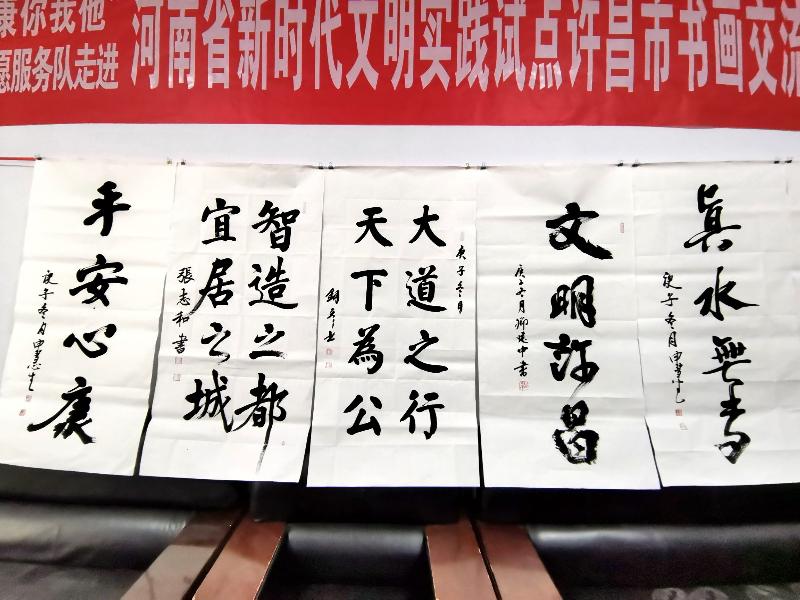 康你我他"
愿服务队走进
河南省新时代文明实践试点许昌市书画交流
平安心康
庚子冬月申慧生
智造之都
宜居之城
張志和書
庚子冬月
大道之行
天下為公
文明許昌
庚子冬月
真水無香
庚子冬月申慧生